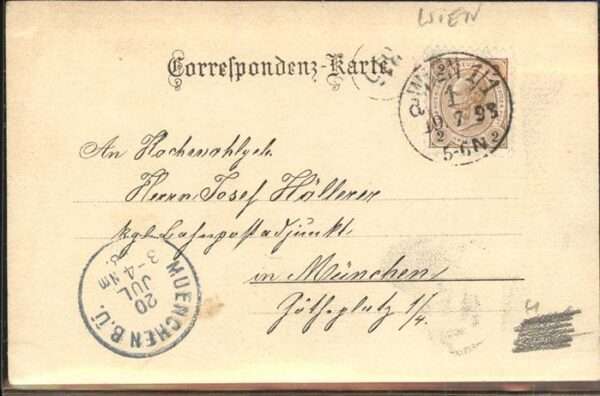 WIEN
Correspondenz-Karte.
WIEN 1/1
1
19 7 98
5-6N
2 2
An Hochwohlgeb.
Herrn Josef Höllerer
kgl. Bahnpostadjunkt
in München
Götheplatz 1/4.
MUENCHEN B.Ü.
20
JUL
3-4 Nm